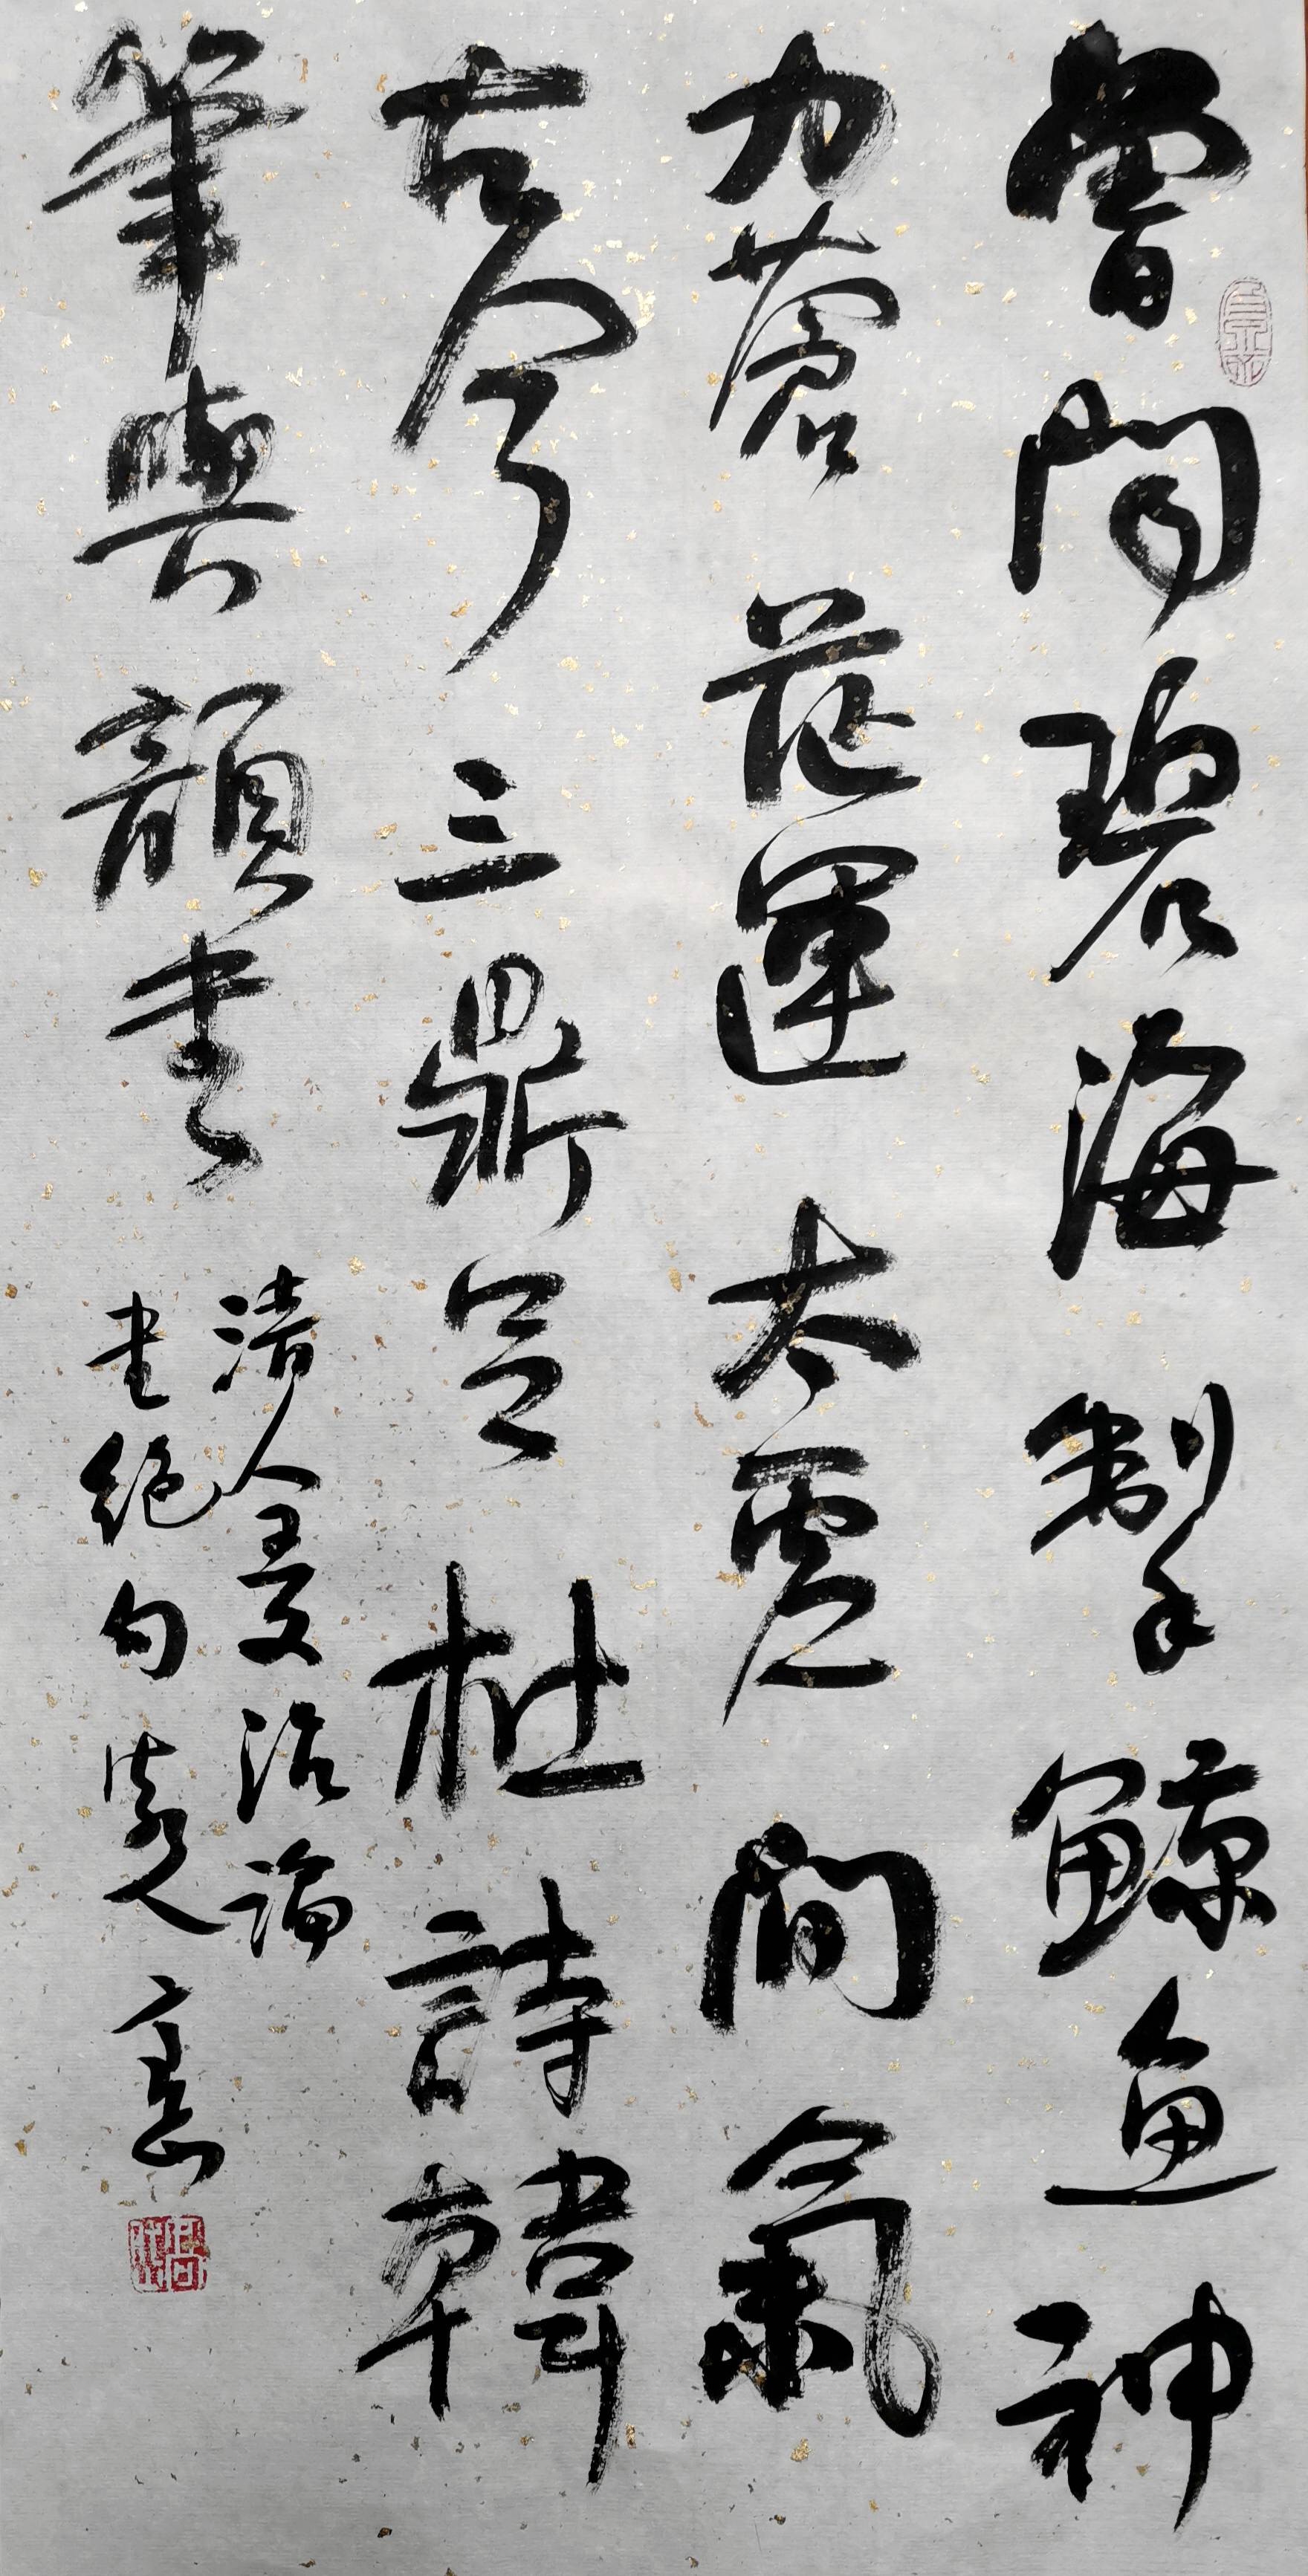 曾聞碧海掣鯨魚神
力蒼茫運太虛間氣
古今三鼎足杜詩韓
筆與顏書
清人王文治論
書絕句